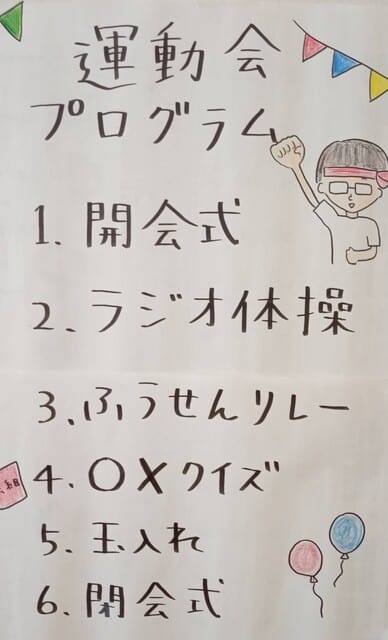 運動会
プログラム
1. 開会式
2. ラジオ体操
3. ふうせんリレー
4. ○×クイズ
5. 玉入れ
6. 閉会式
組